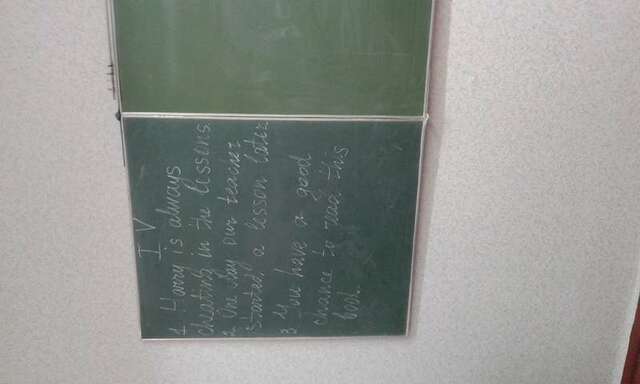 I V
1. Harry is always
cheating in the lessons.
2. One day our teacher
started a lesson later
3. You have a good
chance to read this
book.